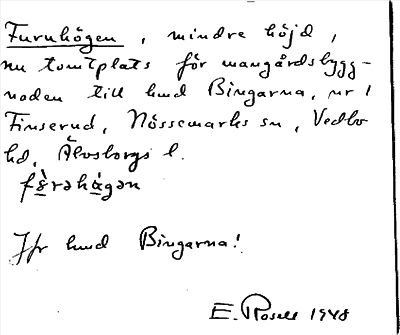 Furuhögen, mindre höjd,
nu tomtplats för mangårdsbygg-
naden till hmd Bingarna, nr 1
Finserud, Nössemarks sn, Vedbo
hd, Älvsborgs l.
Jfr hmd Bingarna!
E. Rosell 1948